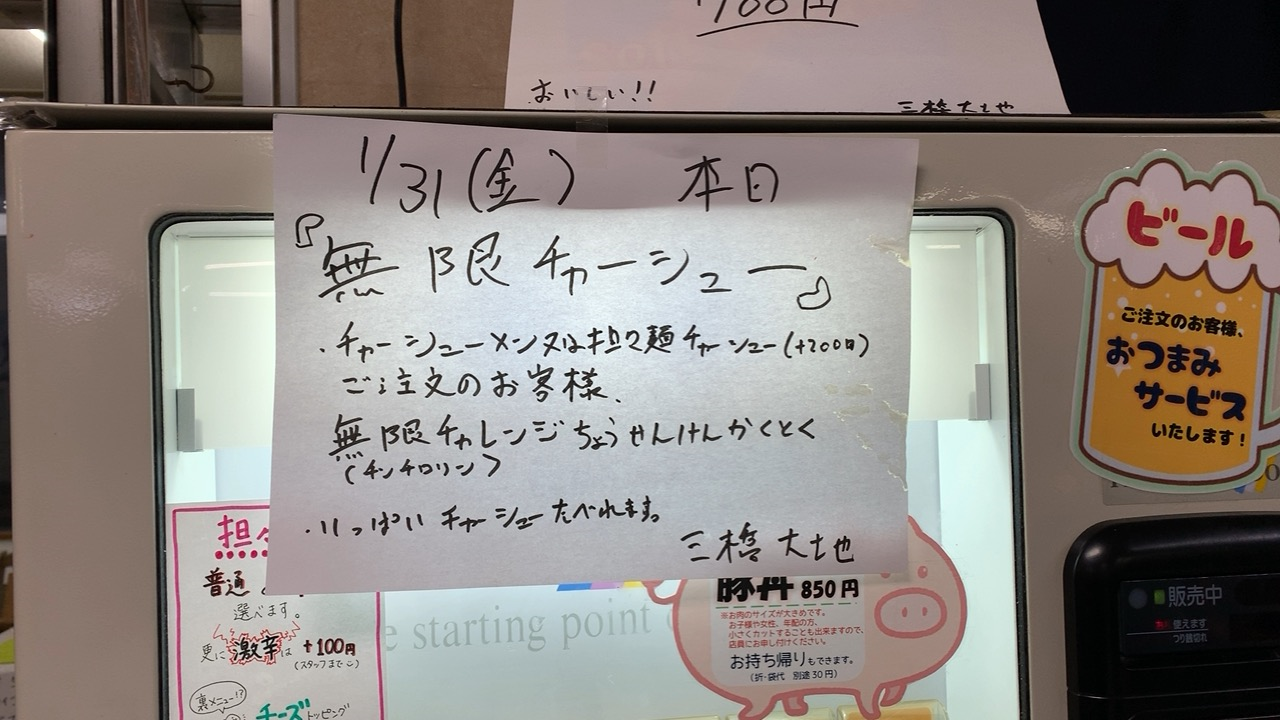 おいしい!!
三橋 大地
1/31(金) 本日
『無限チャーシュー』
・チャーシューメン又は担々麺チャーシュー(+200円)
ご注文のお客様、
無限チャレンジちょうせんけんかくとく
(チンチロリン)
・いっぱいチャーシューたべれます。
三橋 大地
ビール
ご注文のお客様、
おつまみ
サービス
いたします!
担々
普通
選べます。
更に激辛は+100円
(スタッフまで)
裏メニュー!?
チーズトッピング
starting point
豚丼 850円
※お肉のサイズが大きめです。
お子様や女性、年配の方、
小さくカットすることも出来ますので、
店員にお申し付けください。
お持ち帰りもできます。
(折・袋代 別途30円)
販売中
使えます
つり銭切れ